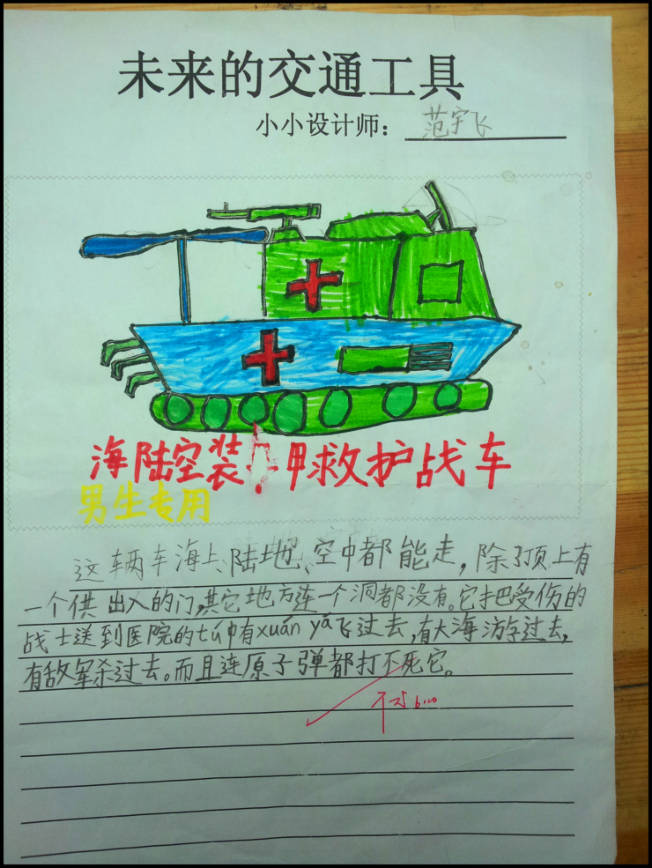 未来的交通工具
小小设计师：范宇飞
海陆空装甲救护战车
男生专用
这辆车海上、陆地、空中都能走，除了顶上有
一个供出入的门，其它地方连一个洞都没有。它把受伤的
战士送到医院的tú中有xuán yá飞过去，有大海游过去，
有敌军杀过去。而且连原子弹都打不死它。
不